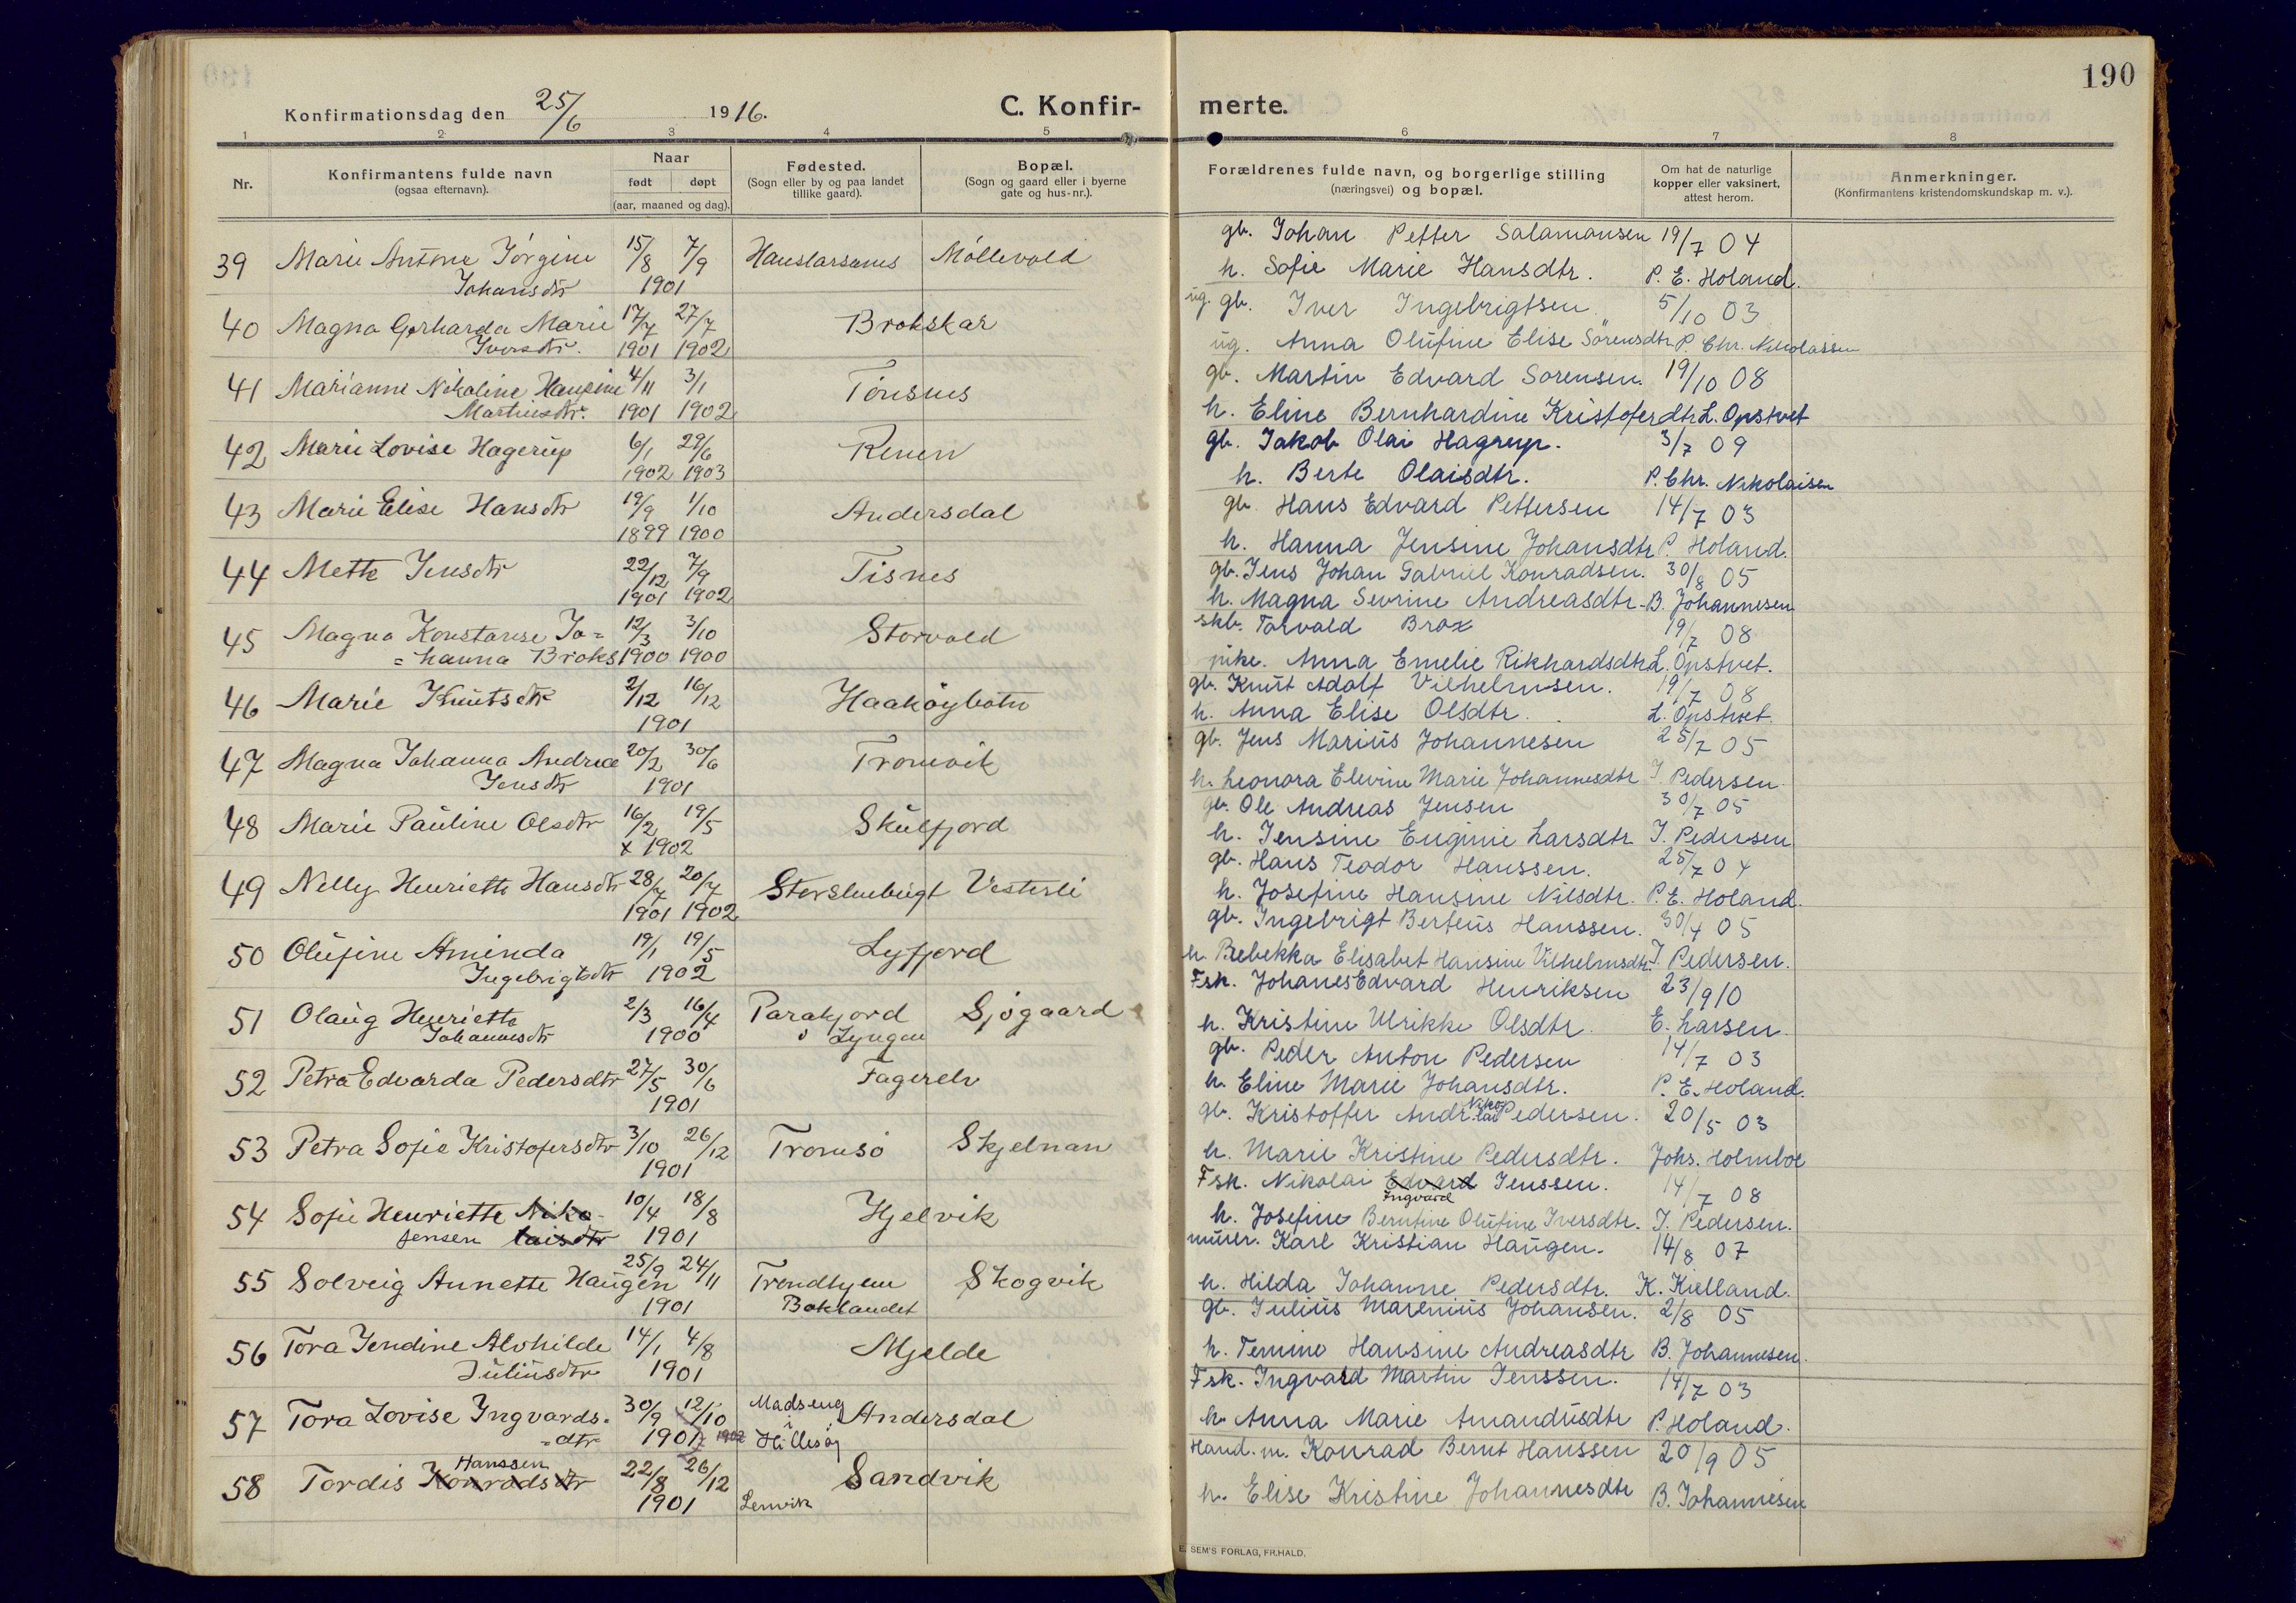 Konfirmationsdag den 25/6 1916. C. Konfir-
merte. 190
1 2 3 4 5 6 7 8
Nr.
Konfirmantens fulde navn
(ogsaa efternavn).
Naar
født døpt
(aar, maaned og dag).
Fødested.
(Sogn eller by og paa landet
tillike gaard).
Bopæl.
(Sogn og gaard eller i byerne
gate og hus-nr.).
Forældrenes fulde navn, og borgerlige stilling
(næringsvei) og bopæl.
Om hat de naturlige
kopper eller vaksinert,
attest herom.
Anmerkninger.
(Konfirmantens kristendomskundskap m. v.).
39 Marie Antone Jørgine 15/8 7/9 Møllevold
Johansdtr 1901
gb. Johan Petter Salamonsen 19/7 04
h. Sofie Marie Hansdtr. P. E. Holand.
40 Magna Gerharda Marie 17/7 27/7 Brokskar
Iversdtr. 1901 1902
ug. gb. Iver Ingebrigtsen 5/10 03
ug. Anna Olufine Elise Sörensdtr P. Chr. Nikolaisen
41 Marianne Nikoline Hansine 4/11 3/1 Tönsnes
Martinsdtr. 1901 1902
gb. Martin Edvard Sorensen. 19/10 08
h. Eline Bernhardine Kristoferdtr L. Opstvet
42 Marie Lovise Hagerup 6/1 29/6 Renen
1902 1903
gb. Jakob Olai Hagrup. 3/7 09
h. Berte Olaisdtr. P. Chr. Nikolaisen
43 Marie Elise Hansdtr 19/9 1/10 Andersdal
1899 1900
gb. Hans Edvard Pettersen 14/7 03
h. Hanna Jensine Johansdtr P. Holand.
44 Mette Jensdtr 22/12 7/9 Tisnes
1901 1902
gb. Jens Johan Gabriel Konradsen. 30/8 05
h. Magna Sevrine Andreasdtr. B. Johannesen
45 Magna Konstanse Jo= 12/3 3/10 Storvold
=hanna Broks 1900 1900
skb. Torvald Brox 19/7 08
pike. Anna Emelie Rikhardsdtr L. Opstvet.
46 Marie Knutsdtr 2/12 16/12 Haakøybotn
1901
gb. Knut Adolf Vilhelmsen. 19/7 08
h. Anna Elise Olsdtr. L. Opstvet.
47 Magna Johanna Andrea 20/2 30/6 Tromvik
Jensdtr 1901
gb. Jens Marius Johannesen 25/7 05
h. Leonora Elevine Marie Johannesdtr J. Pedersen.
48 Marie Pauline Olsdtr 16/2 19/5 Skulfjord
x 1902
gb. Ole Andreas Jensen 30/7 05
h. Jensine Euginie Larsdtr J. Pedersen
49 Nelly Henriette Hansdtr 28/7 20/7 Storslenbugt Vesterli
1901 1902
gb. Hans Teodor Hanssen. 25/7 04
h. Josefine Hansine Nilsdtr. P. E. Holand.
50 Olufine Aminda 19/1 19/5 Lyfjord
Ingebrigtsdtr 1902
gb. Ingebrigt Berteus Hanssen. 30/4 05
h Rebekka Elisabet Hansine Vilhelmsdtr. J. Pedersen.
51 Olaug Henriette 2/3 16/4 Parakjord Sjøgaard
Johannesdtr 1900 Lyngen
Fsk. Johanes Edvard Henriksen 23/9 10
h. Kristine Ulrikke Olsdtr. E. Larsen.
52 Petra Edvarda Pedersdtr 27/5 30/6 Fagerelv
1901
gb. Peder Anton Pedersen 14/7 03
h. Eline Marie Johansdtr. P. E. Holand.
53 Petra Sofie Kristofersdtr 3/10 26/12 Tromsø Skjelnan
1901
gb. Kristoffer Andr. Nikolai Pedersen. 20/5 03
h. Marie Kristine Pedersdtr. Johs. Holmboe
54 Sofie Henriette Niko- 10/4 18/8 Hjelvik
Jensen laisdtr 1901
Fsk. Nikolai Edvard Jenssen. 14/7 08
Ingvard
h. Josefine Berntine Olufine Iversdtr. J. Pedersen.
55 Solveig Annette Haugen 25/9 24/11 Trondhjem Skogvik
1901 Baklandet
murer. Karl Kristian Haugen. 14/8 07
h. Hilda Johanne Pedersdtr. K. Kielland.
56 Tora Jendine Alvhilde 14/1 4/8 Mjelde
Juliusdtr 1901
gb. Julius Marenius Johansen. 2/8 05
h. Temine Hansine Andreasdtr B. Johannesen.
57 Tora Lovise Ingvards- 30/9 12/10 Madseng Andersdal
=dtr 1901 1902 i Hillesøy
Fsk. Ingvard Martin Jenssen. 14/7 03
h. Anna Marie Amandusdtr P. Holand.
58 Tordis Konradsdtr 22/8 26/12 Sandvik
Hanssen 1901 Lenvik
Hand. m. Konrad Bernt Hanssen 20/9 05
h. Elise Kristine Johannesdtr B. Johannesen
E. SEM'S FORLAG, FR.HALD.